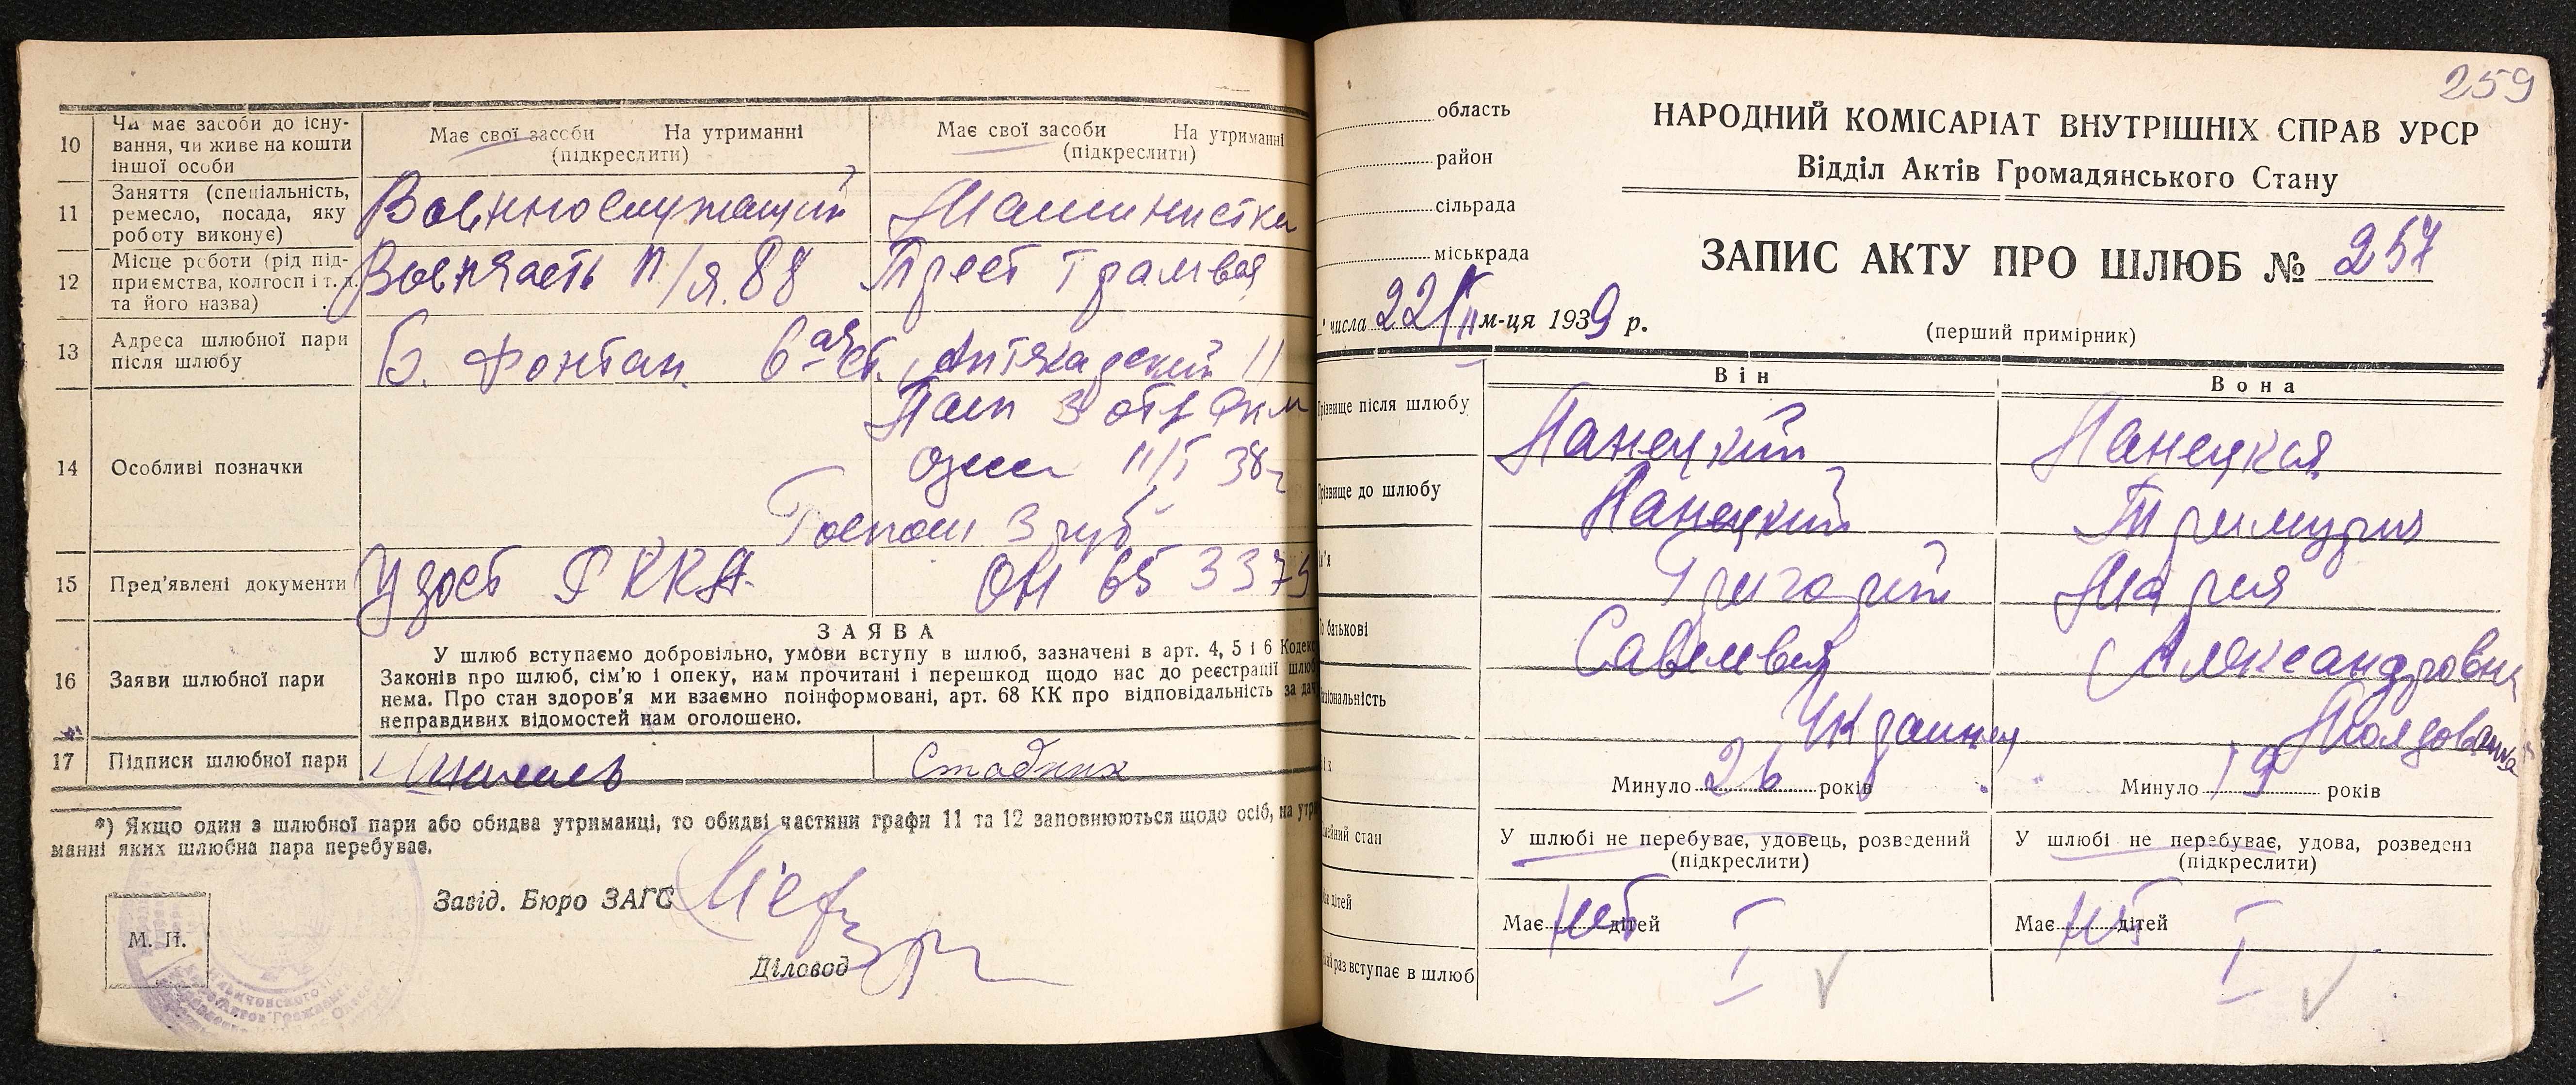 10
Чи має засоби до існу-
вання, чи живе на кошти
іншої особи
Має свої засоби На утриманні
(підкреслити)
Має свої засоби На утриманні
(підкреслити)
11
Заняття (спеціальність,
ремесло, посада, яку
роботу виконує)
Военнослужащий
Машинистка
12
Місце роботи (рід під-
приємства, колгосп і т. д.
та його назва)
Воен часть п/я. 88
Трест Трамвая
13
Адреса шлюбної пари
після шлюбу
Б. Фонтан 6ая ст. 11
14
Особливі позначки
Пасп 3 отд
38г
Госпош 3 руб
15
Пред'явлені документи
Удост РККА
ОН 65 3375
16
Заяви шлюбної пари
ЗАЯВА
У шлюб вступаємо добровільно, умови вступу в шлюб, зазначені в арт. 4, 5 і 6 Кодекс
Законів про шлюб, сім'ю і опеку, нам прочитані і перешкод щодо нас до реєстрації шлюб
нема. Про стан здоров'я ми взаємно поінформовані, арт. 68 КК про відповідальність за дач
неправдивих відомостей нам оголошено.
17
Підписи шлюбної пари
Стадник
*) Якщо один з шлюбної пари або обидва утриманці, то обидві частини графи 11 та 12 заповнюються щодо осіб, на утри
манні яких шлюбна пара перебуває.
Завід. Бюро ЗАГС
М. П.
Діловод
259
область
район
сільрада
міськрада
НАРОДНИЙ КОМІСАРІАТ ВНУТРІШНІХ СПРАВ УРСР
Відділ Актів Громадянського Стану
ЗАПИС АКТУ ПРО ШЛЮБ № 257
числа 22/II м-ця 1939 р.
(перший примірник)
Він
Вона
різвище після шлюбу
Панецкий
Панецкая
різвище до шлюбу
Панецкий
м'я
Григорий
Мария
о батькові
Савельев
Александровна
аціональність
Украинец
Молдованка
ік
Минуло 26 років
Минуло 19 років
мейний стан
У шлюбі не перебуває, удовець, розведений
(підкреслити)
У шлюбі не перебуває, удова, розведена
(підкреслити)
дітей
Має нет дітей
Має нет дітей
раз вступає в шлюб
I
I